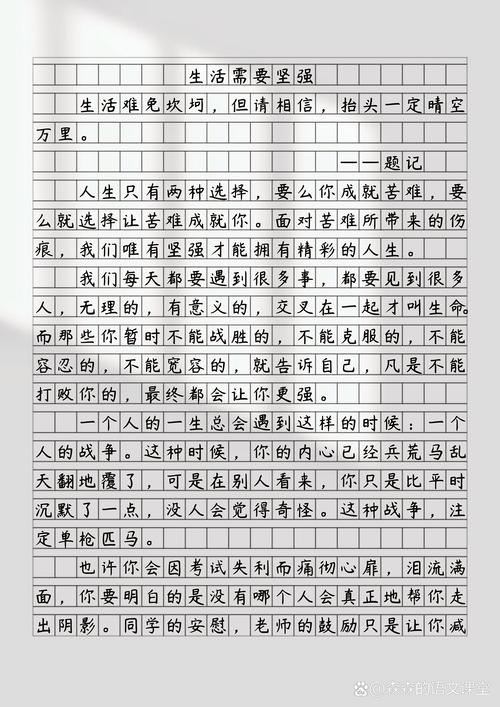 生活需要坚强
生活难免坎坷，但请相信，抬头一定晴空
万里。
——题记
人生只有两种选择，要么你成就苦难，要
么就选择让苦难成就你。面对苦难所带来的伤
痕，我们唯有坚强才能拥有精彩的人生。
我们每天都要遇到很多事，都要见到很多
人，无理的，有意义的，交叉在一起才叫生命。
而那些你暂时不能战胜的，不能克服的，不能
容忍的，不能宽容的，就告诉自己，凡是不能
打败你的，最终都会让你更强。
一个人的一生总会遇到这样的时候：一个
人的战争。这种时候，你的内心已经兵荒马乱
天翻地覆了，可是在别人看来，你只是比平时
沉默了一点，没人会觉得奇怪。这种战争，注
定单枪匹马。
也许你会因考试失利而痛彻心扉，泪流满
面，你要明白的是没有哪个人会真正地帮你走
出阴影。同学的安慰，老师的鼓励只是让你减
@森森的语文课堂